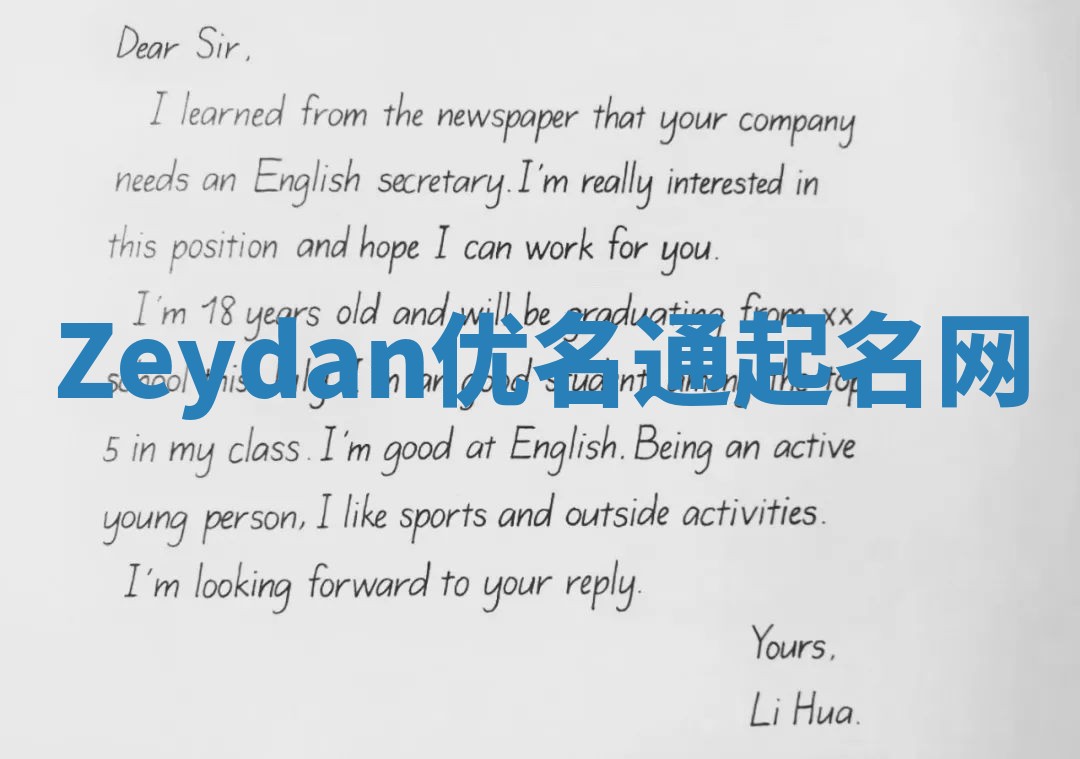 Dear Sir,
I learned from the newspaper that your company
needs an English secretary. I'm really interested in
this position and hope I can work for you.
I'm 18 years old and will be graduating from xx
Zeydan优名通起名网
school this July. I'm an good student among the top
5 in my class. I'm good at English. Being an active
young person, I like sports and outside activities.
I'm looking forward to your reply.
Yours,
Li Hua.